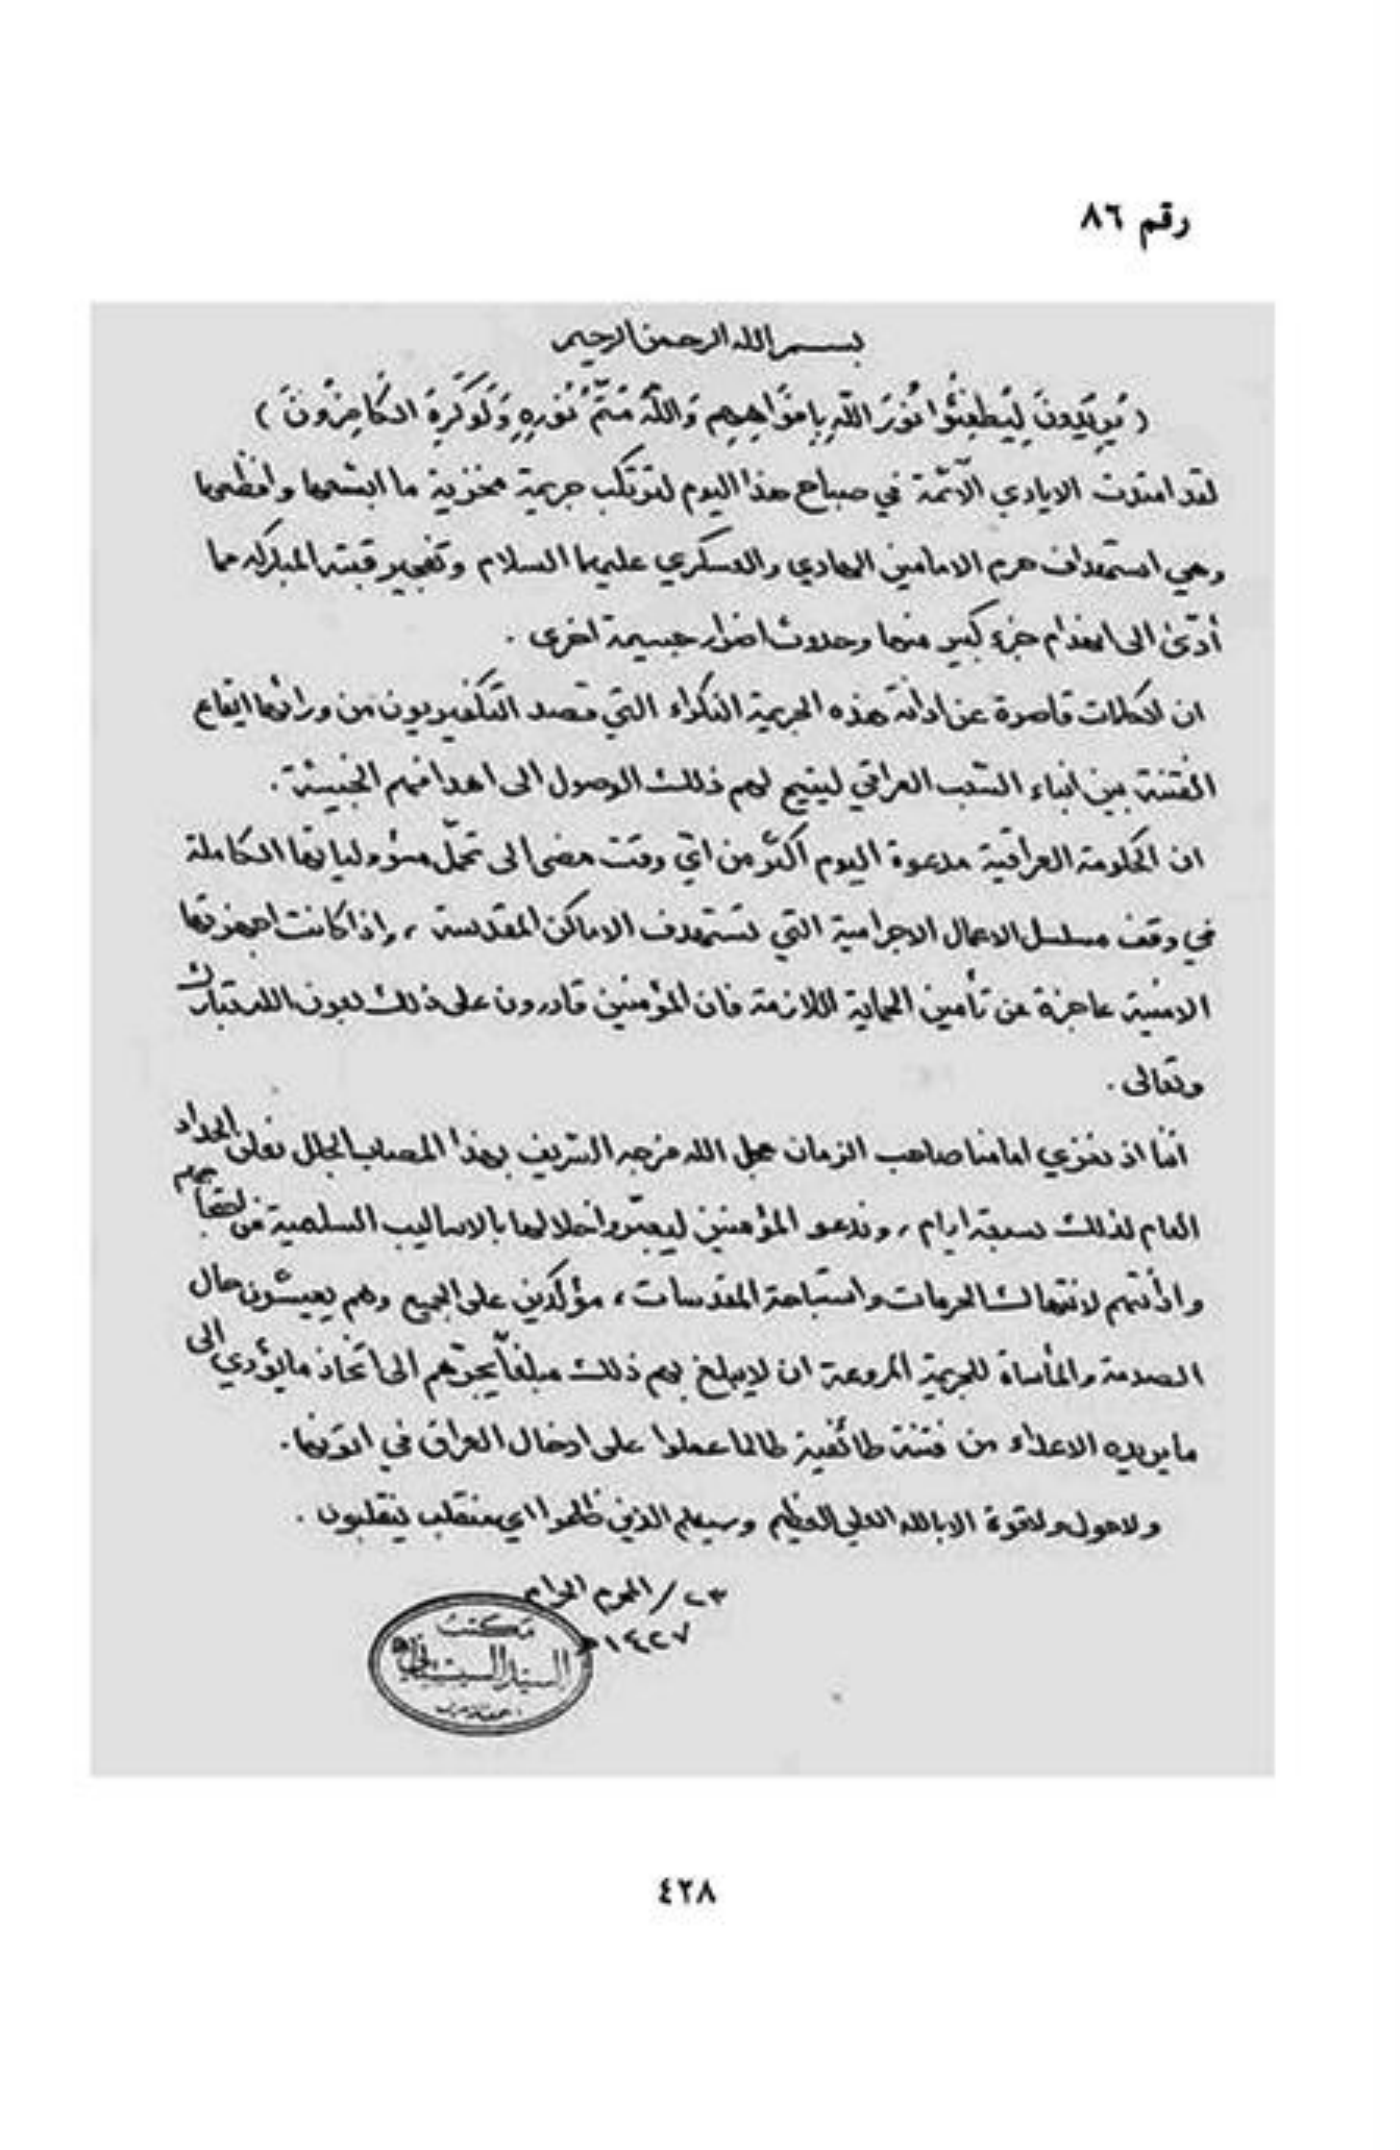 رقم ٨٦
بسم الله الرحمن الرحيم
( يُرِيدُونَ لِيُطْفِئُوا نُورَ اللّهِ بِأَفْوَاهِهِم وَاللّهُ مُتِمُّ نُورِهِ وَلَوْكَرِهَ الكَافِرُونَ )
لقد امتدت الايادي الآثمة في صباح هذا اليوم لترتكب جريمة مخزية ما ابشعها وافظعها
وهي استهداف حرم الامامين الهادي والعسكري عليهما السلام وتفجير قبته المباركة مما
أدّى الى انهدام جزء كبير منها وحدوث اضرار جسيمة اخرى .
ان الكلمات قاصرة عن ادانة هذه الجريمة النكراء التي قصد التكفيريون من ورائها ايقاع
الفتنة بين ابناء الشعب العراقي ليتيح لهم ذلك الوصول الى اهدافهم الخبيثة .
ان الحكومة العراقية مدعوة اليوم اكثر من ايّ وقت مضى الى تحمّل مسؤولياتها الكاملة
في وقف مسلسل الاعمال الاجرامية التي تستهدف الاماكن المقدسة ، واذا كانت اجهزتها
الامنية عاجزة عن تأمين الحماية اللازمة فان المؤمنين قادرون على ذلك بعون الله تبارك
وتعالى .
اننا اذ نعزي امامنا صاحب الزمان عجل الله فرجه الشريف بهذا المصاب الجلل نعلن الحداد
العام لذلك سبعة ايام ، وندعو المؤمنين ليعبّروا خلالها بالاساليب السلمية عن احتجاجهم
وادانتهم لانتهاك الحرمات واستباحة المقدسات ، مؤكدين على الجميع وهم يعيشون حال
الصدمة والمأساة للجريمة المروعة ان لا يبلغ بهم ذلك مبلغاً يجرّهم الى اتخاذ ما يؤدي الى
ما يريده الاعداء من فتنة طائفية طالما عملوا على ادخال العراق في اتونها .
ولا حول ولا قوة الا بالله العلي العظيم وسيعلم الذين ظلموا اي منقلب ينقلبون .
٢٣ / المحرم الحرام
١٤٢٧هـ
مكتب
السيد السيستاني
٤٢٨